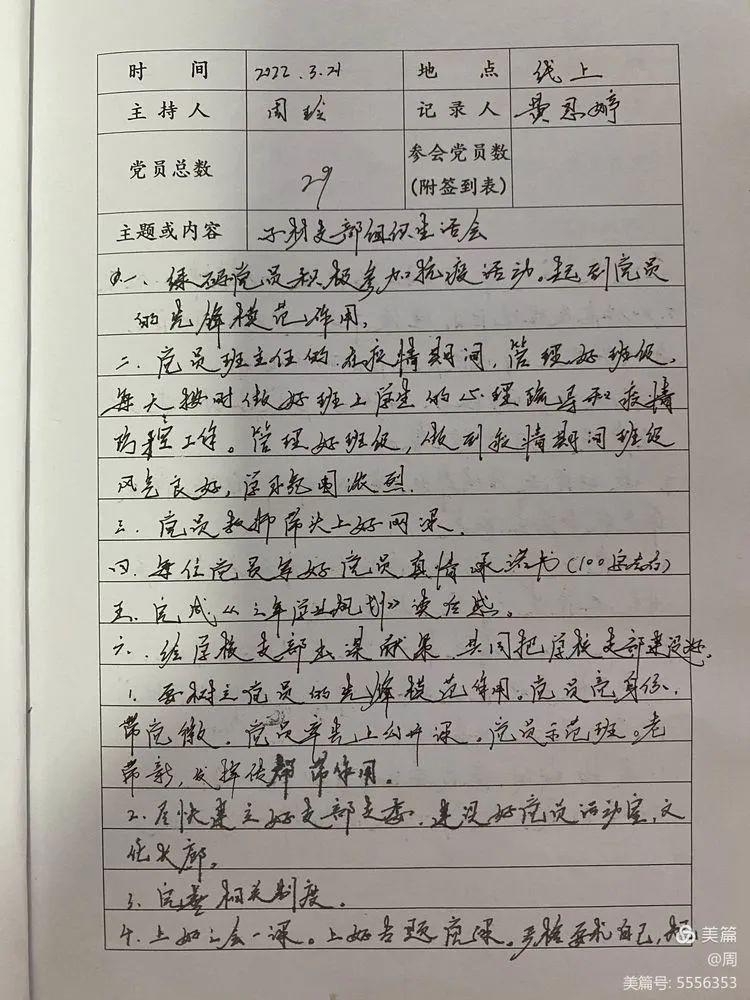 时间 2022.3.21 地点 线上
主持人 周玲 记录人 黄恩婷
党员总数 29 参会党员数
(附签到表)
主题或内容 子材支部组织生活会
一、在职党员积极参加抗疫活动。起到党员
的先锋模范作用。
二、党员班主任的在疫情期间,管理好班级,
每天按时做好班上学生的心理疏导和疫情
防控工作。管理好班级,做到疫情期间班级
风气良好,学习氛围浓烈.
三、党员教师带头上好网课.
四、每位党员写好党员真情承诺书(100字左右)
五、完成《三年学业规划》读后感。
六、给学校支部出谋献策,共同把学校支部建设好.
1.要树立党员的先锋模范作用。党员亮身份,
带党徽.党员率先上公开课.党员示范班。老
带新,发挥传帮带作用。
2.尽快建立好支部支委,建设好党员活动室,文
化长廊。
3.完善相关制度.
4.上好三会一课。上好专题党课.严格要求自己,
美篇
@周
美篇号: 5556353